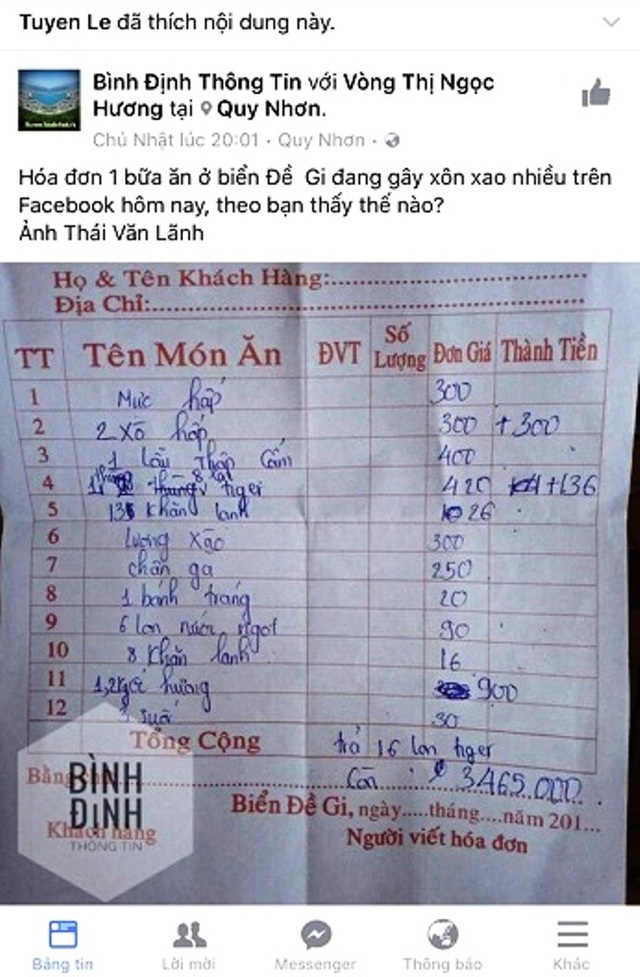 Tuyen Le đã thích nội dung này.
Bình Định Thông Tin với Vòng Thị Ngọc
Hương tại Quy Nhơn.
Chủ Nhật lúc 20:01 · Quy Nhơn ·
Hóa đơn 1 bữa ăn ở biển Đề Gi đang gây xôn xao nhiều trên
Facebook hôm nay, theo bạn thấy thế nào?
Ảnh Thái Văn Lãnh
Họ & Tên Khách Hàng:
Địa Chỉ:
TT Tên Món Ăn ĐVT Số Lượng Đơn Giá Thành Tiền
1 Mực hấp 300
2 2 Xô hấp 300 + 300
3 1 Lẩu Thập Cẩm 400
4 1 thùng 8 lon tiger 420 +136
5 13 Khăn lạnh 26
6 Lương xào 300
7 chân gà 250
8 1 bánh tráng 20
9 6 lon nước ngọt 90
10 8 Khăn lạnh 16
11 1,2kg hương 900
12 30
Tổng Cộng trả 16 lon tiger
Bằng Còn 3465.000
BÌNH
ĐỊNH
THÔNG TIN
Biển Đề Gi, ngày.....tháng....năm 201...
Khách hàng Người viết hóa đơn
Bảng tin Lời mời Messenger Thông báo Khác